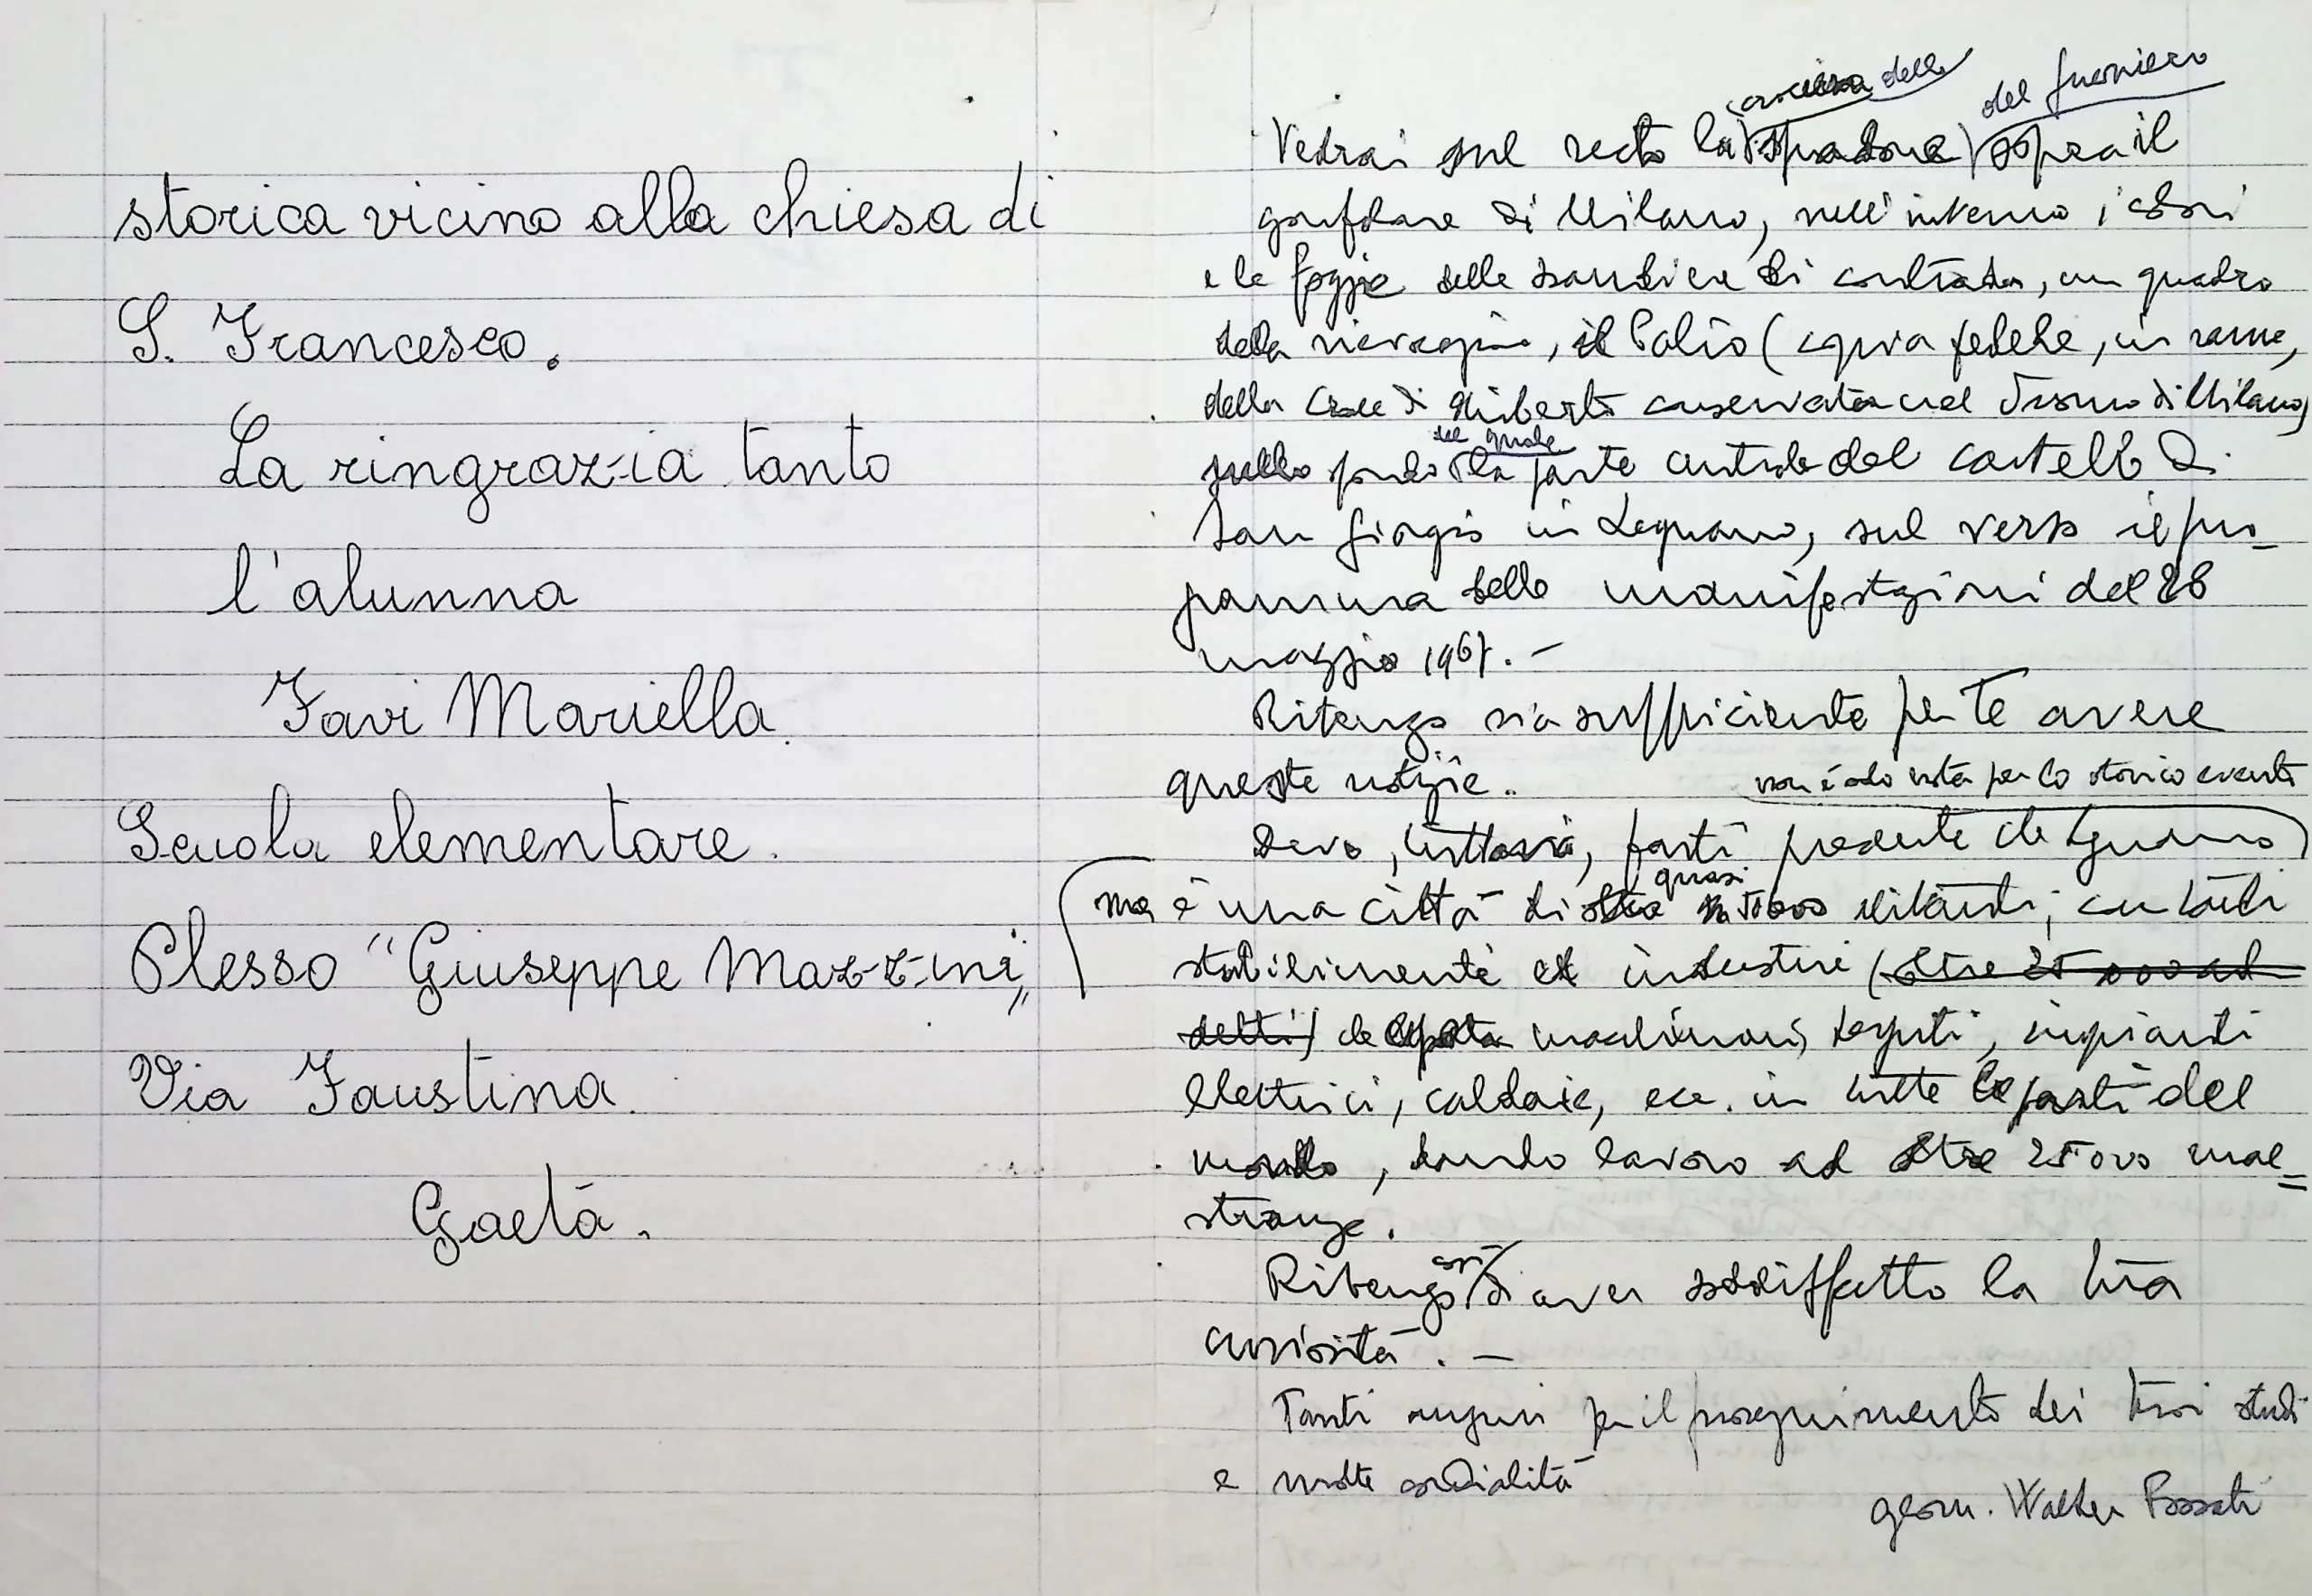 storica vicino alla chiesa di
S. Francesco.
La ringrazia tanto
l'alunna
Favi Mariella.
Scuola elementare.
Plesso "Giuseppe Mazzini"
Via Faustina.
Gaeta.
della
del guerriero
Vedrai sul recto la spadone sopra il
gonfalone di Milano, nell'interno i colori
e le foggie delle bandiere di contrada, un quadro
della rievocazione, il Palio (copia fedele, in rame,
della Croce di Ariberto conservata nel Duomo di Milano)
del quale
sullo sfondo la parte centrale del castello di
San Giorgio in Legnano, sul verso il pro-
gramma delle manifestazioni del 28
maggio 1967. —
Ritengo sia sufficiente per te avere
queste notizie.
non è solo nota per lo storico evento
Devo, tuttavia, farti presente che Legnano
quasi
ma è una città di abitanti, con tanti
stabilimenti ed industrie (oltre 25000 ad
detti) che macchinari, tessuti, impianti
elettrici, caldaie, ecc. in tutte le parti del
mondo, dando lavoro ad oltre 25000 mae=
stranze.
così
Ritengo di aver soddisfatto la tua
curiosità. —
Tanti auguri per il proseguimento dei tuoi studi
e molte cordialità
geom. Walter